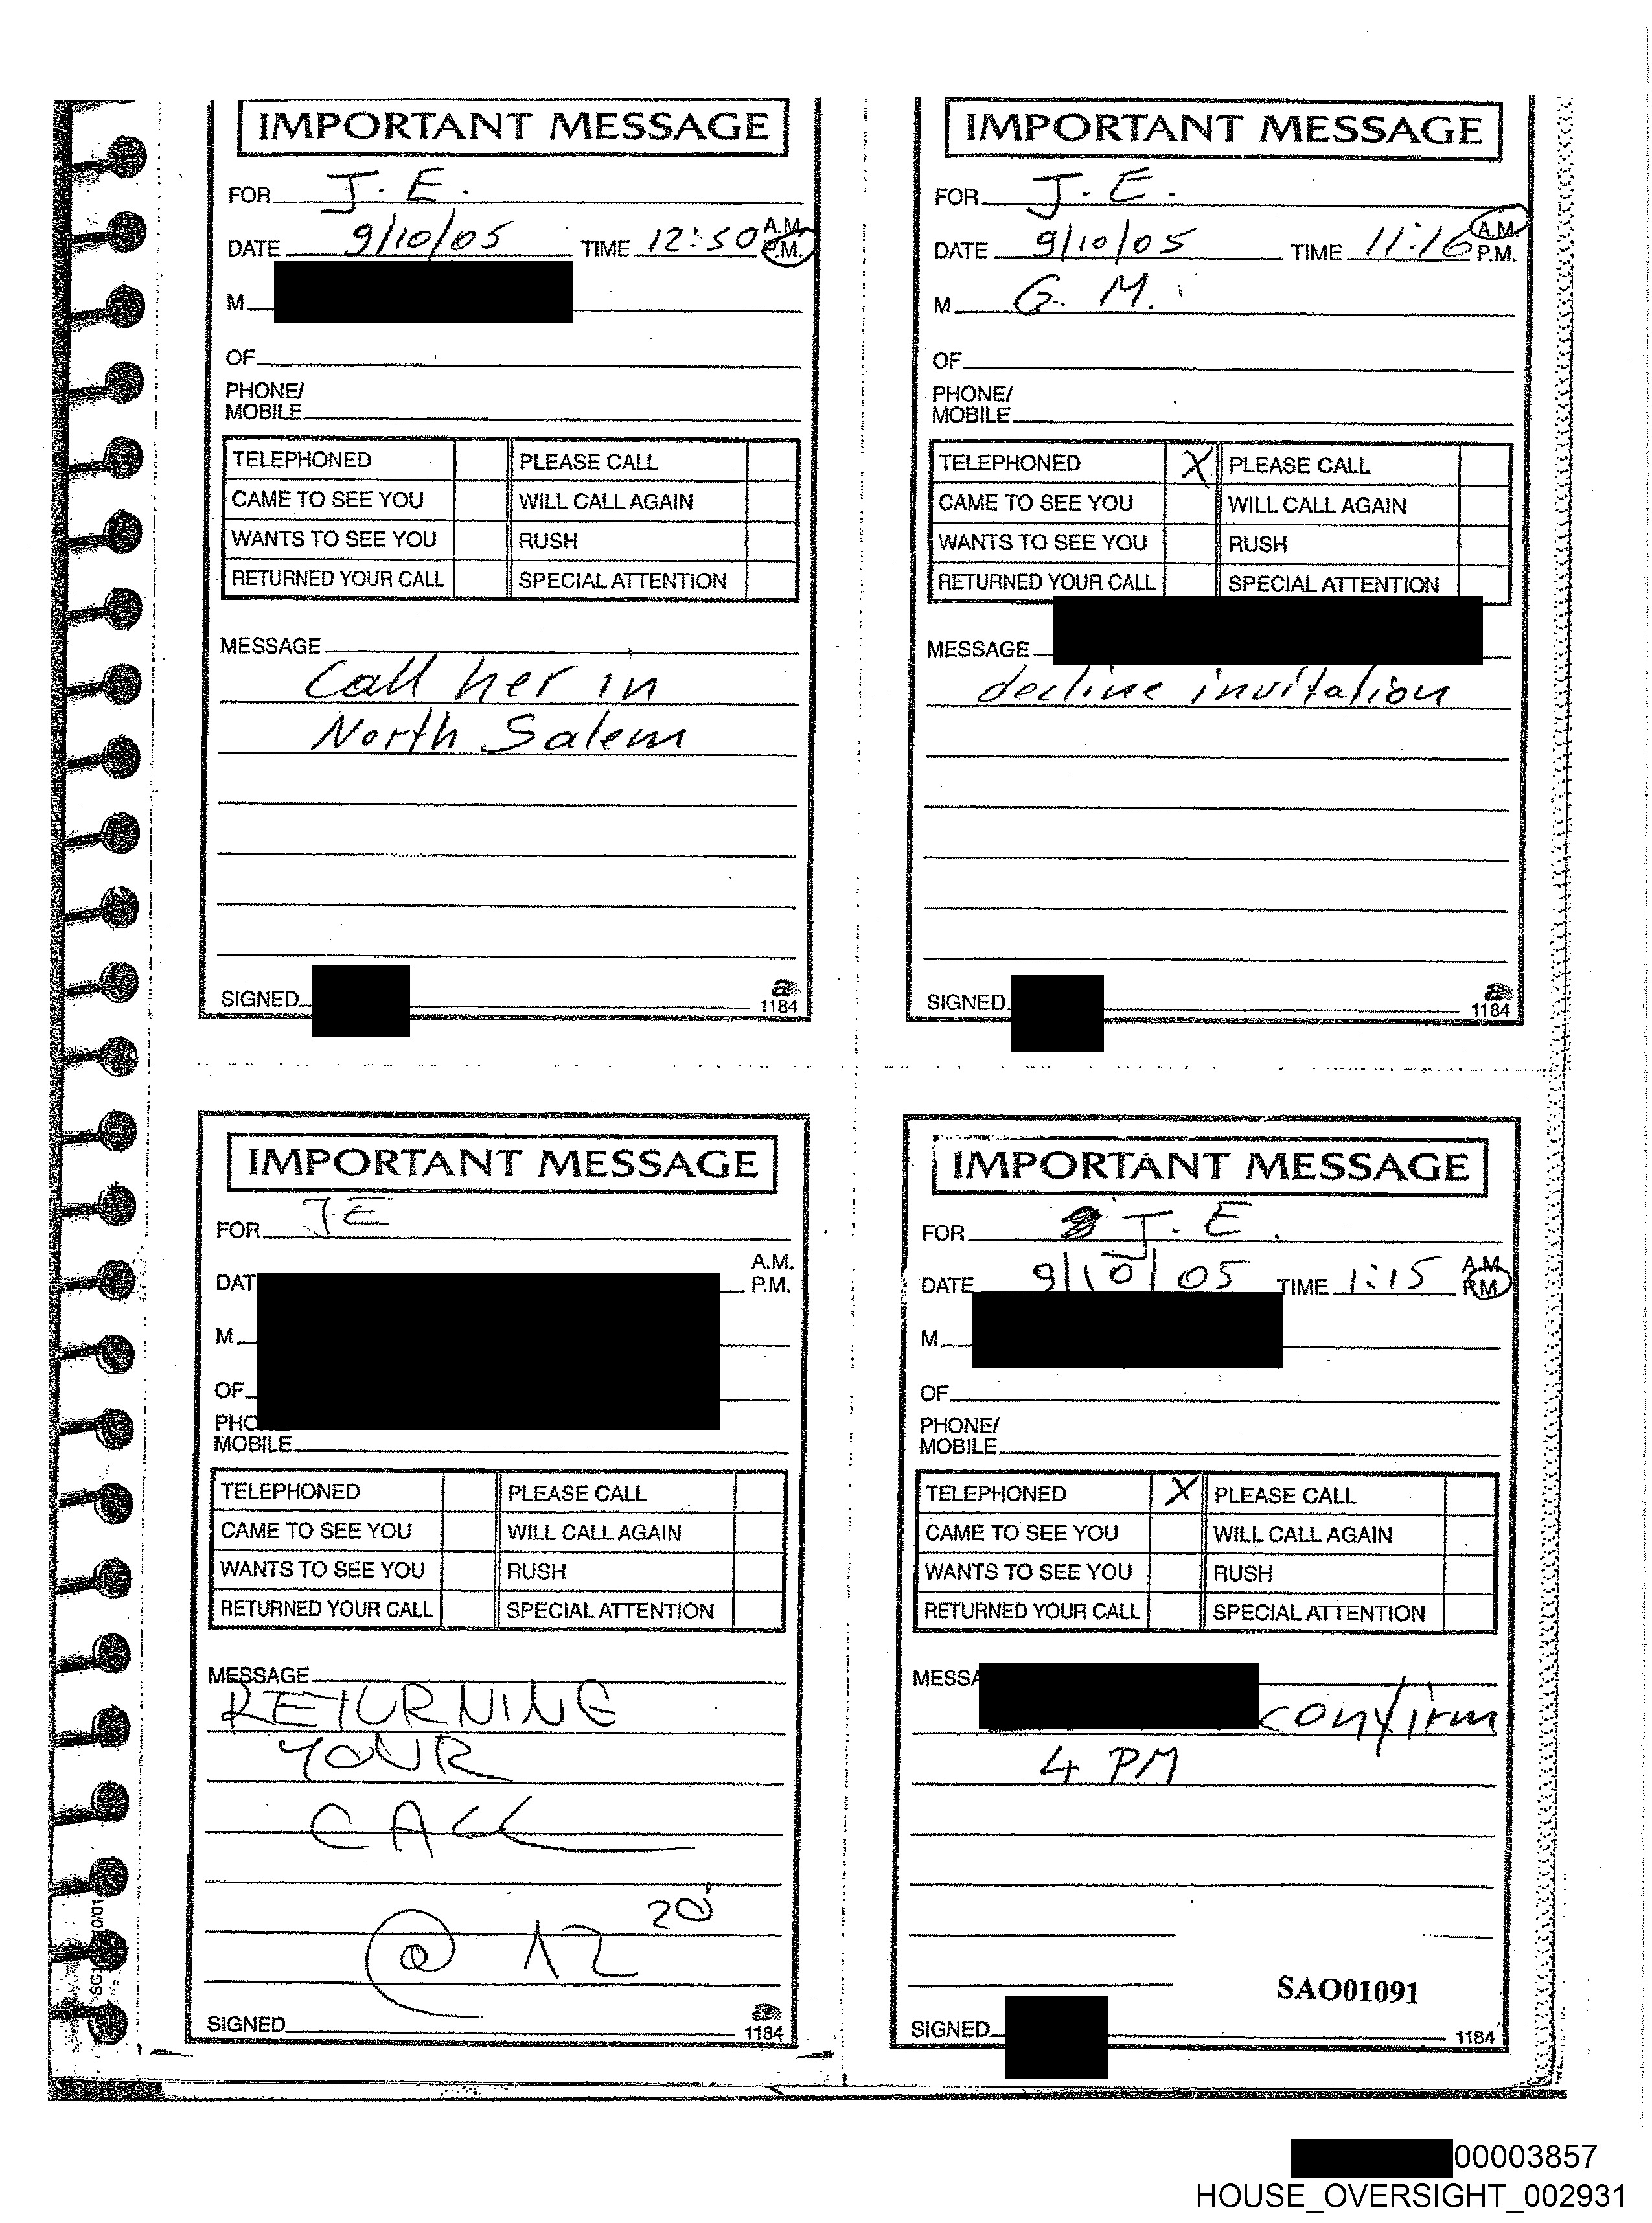 IMPORTANT MESSAGE
FOR J. E.
DATE 9/10/05 TIME 12:50 A.M. P.M.
M
OF
PHONE/
MOBILE
TELEPHONED PLEASE CALL
CAME TO SEE YOU WILL CALL AGAIN
WANTS TO SEE YOU RUSH
RETURNED YOUR CALL SPECIAL ATTENTION
MESSAGE
Call her in
North Salem
SIGNED
1184
IMPORTANT MESSAGE
FOR J. E.
DATE 9/10/05 TIME 11:16 A.M. P.M.
M G. M.
OF
PHONE/
MOBILE
TELEPHONED X PLEASE CALL
CAME TO SEE YOU WILL CALL AGAIN
WANTS TO SEE YOU RUSH
RETURNED YOUR CALL SPECIAL ATTENTION
MESSAGE
decline invitation
SIGNED
1184
IMPORTANT MESSAGE
FOR JE
A.M.
DAT P.M.
M
OF
PHO
MOBILE
TELEPHONED PLEASE CALL
CAME TO SEE YOU WILL CALL AGAIN
WANTS TO SEE YOU RUSH
RETURNED YOUR CALL SPECIAL ATTENTION
MESSAGE
RETURNING
YOUR
CALL
@ 12 20
SIGNED
1184
IMPORTANT MESSAGE
FOR J. E.
DATE 9/10/05 TIME 1:15 A.M. P.M.
M
OF
PHONE/
MOBILE
TELEPHONED X PLEASE CALL
CAME TO SEE YOU WILL CALL AGAIN
WANTS TO SEE YOU RUSH
RETURNED YOUR CALL SPECIAL ATTENTION
MESSA confirm
4 PM
SAO01091
SIGNED
1184
00003857
HOUSE_OVERSIGHT_002931